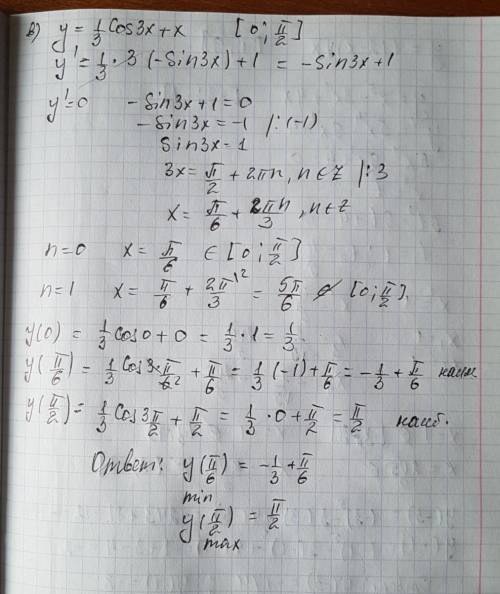 в) y = 1/3 Cos3x + x [0; π/2]
y' = 1/3 * 3 (-Sin3x) + 1 = -Sin3x + 1
y' = 0 -Sin3x + 1 = 0
-Sin3x = -1 /:(-1)
Sin3x = 1
3x = π/2 + 2πn, n∈Z /:3
x = π/6 + 2πn/3, n∈Z
n=0 x = π/6 ∈ [0; π/2]
n=1 x = π/6 + 2π/3 \2 = 5π/6 ∉ [0; π/2]
y(0) = 1/3 cos0 + 0 = 1/3 · 1 = 1/3.
y(π/6) = 1/3 Cos3·π/6 2 + π/6 = 1/3 (-1) + π/6 = -1/3 + π/6 наим
y(π/2) = 1/3 Cos3π/2 + π/2 = 1/3 · 0 + π/2 = π/2 наиб.
Ответ: y(π/6) = -1/3 + π/6
min
y(π/2) = π/2
max